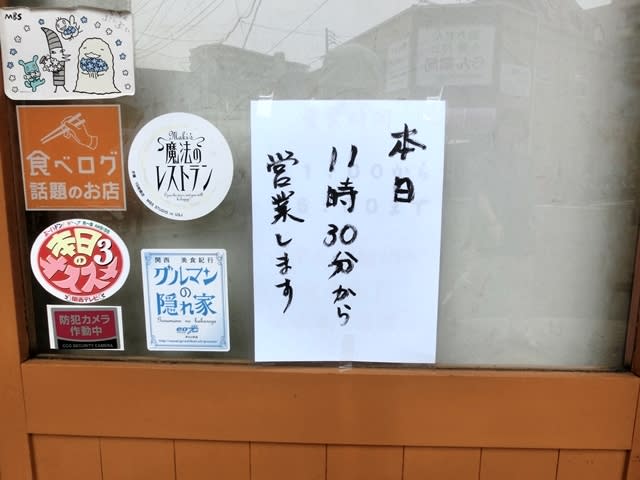 MBS
食べログ
話題のお店
Maki's
魔法の
レストラン
本日の
オススメ3
関西テレビ
防犯カメラ
作動中
CCD SECURITY CAMERA
関西 美食紀行
グルマン
の
隠れ家
Gourmand no kakurega
eo光
チャンネル
本日
11時30分から
営業します